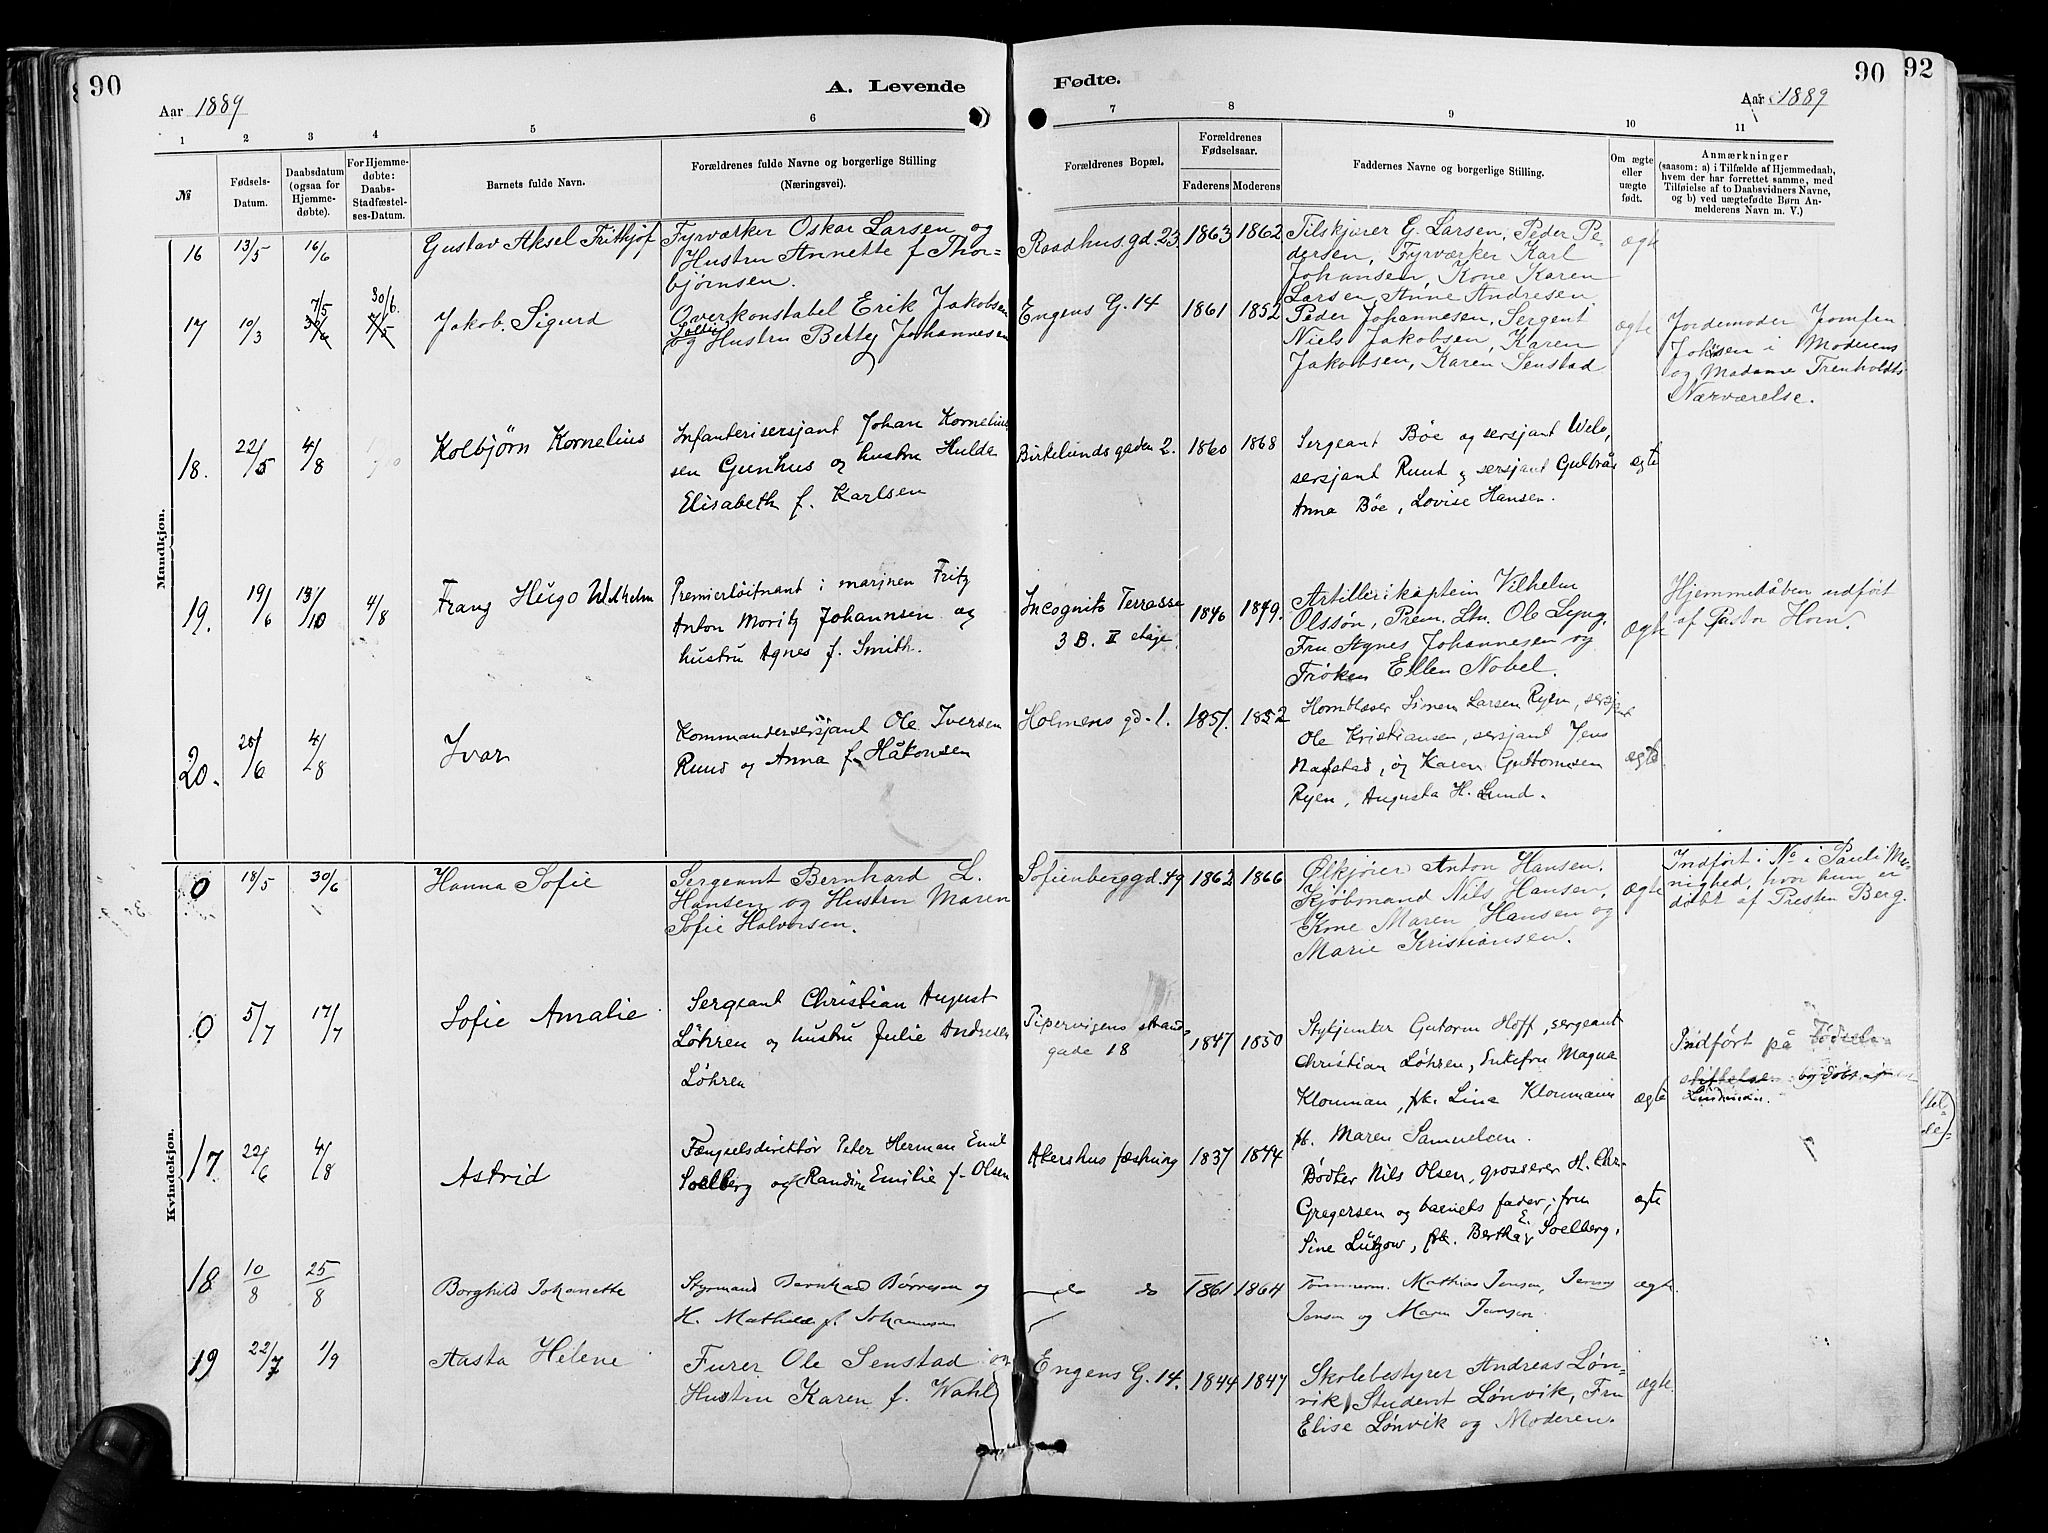 90
A. Levende
Fødte.
90
92
Aar 1889
Aar 1889
1
2
3
4
5
6
7
8
9
10
11
№
Fødsels-
Datum.
Daabsdatum
(ogsaa for
Hjemme-
døbte).
For Hjemme-
døbte:
Daabs-
Stadfæstel-
ses-Datum.
Barnets fulde Navn.
Forældrenes fulde Navne og borgerlige Stilling
(Næringsvei).
Forældrenes Bopæl.
Forældrenes
Fødselsaar.
Faderens
Moderens
Faddernes Navne og borgerlige Stilling.
Om ægte
eller
uægte
født.
Anmærkninger
(saasom: a) i Tilfælde af Hjemmedaab,
hvem der har forrettet samme, med
Tilføielse af to Daabsvidners Navne,
og b) ved uægtefødte Børn An-
melderens Navn m. V.)
Mandkjøn.
16
13/5
16/6
Gustav Aksel Frithjof
Fyrværker Oskar Larsen og
Hustru Annette f Thor-
bjørnsen.
Raadhus.gd.23
1863
1862
Tilskjærer G. Larsen, Peder Pe-
dersen, Fyrværker Karl
Johansen, Kone Karen
Larsen, Anne Andresen
ægte
17
10/3
7/5
30/6
30/6.
7/5
Jakob Sigurd
Overkonstabel Erik Jakobsen
og Hustru Betty Johannesen
Engens G. 14
1861
1852
Peder Johannesen, Sergent
Niels Jakobsen, Karen
Jakobsen, Karen Senstad
ægte
Jordemoder Jomfru
i Moderens
og Madame Trenholdts
Nærværelse.
18.
22/5
4/8
Kolbjørn Kornelius
Infanterisersjant Johan Kornelius-
sen Gunhus og hustru Hulda
Elisabeth f. Karlsen
Birkelunds gaden 2.
1860
1868
Sergeant Böe og sersjant Welo,
sersjant Ruud og sersjant Gulbrås
Anna Böe, Lovise Hansen.
ægte
19.
19/6
13/10
4/8
Franz Hugo Wilhelm
Premierløitnant i marinen Fritz
Anton Moritz Johannsen og
hustru Agnes f. Smith.
Incognito Terrasse
3 B. II etage
1846
1849.
Artillerikaptein Vilhelm
Olssøn, Prem. Ltn. Ole Lyng,
Fru Agnes Johannesen og
Frøken Ellen Nobel.
ægte
Hjemmedåben udført
af Pastor Horn.
20.
25/6
4/8
Ivar
Kommandersersjant Ole Iversen
Ruud og Anna f. Håkonsen
Holmens gd. 1.
1851.
1852
Hornblaser Simen Larsen Ryen, sersjant
Ole Kristiansen, sersjant Jens
Nafstad, og Karen Guttomsen
Ryen, Augusta H. Lund.
ægte
Kvindekjøn.
0
18/5
30/6
Hanna Sofie
Sergeant Bernhard L.
Hansen og Hustru Maren
Sofie Halvorsen.
Sofienberggd. 49
1862
1866
Ølkjører Anton Hansen.
Kjøbmand Nils Hansen,
Kone Maren Hansen og
Marie Kristiansen.
ægte
Indført i No i Pauli Me-
nighed, hvor hun er
døbt af Presten Berg.
0
5/7
17/7
Sofie Amalie
Sergeant Christian August
Löhren og hustru Julie Andresen
Löhren
Pipervigens strand-
gade 18
1847
1850
Stykjunker Gutorm Hoff, sergeant
Christian Löhren, Enkefru Magna
Klouman, frk. Lina Kloumann
frk. Maren Samuelsen.
ægte
Indført på Fødsels-
stiftelsen
Lindeman.
17.
22/6
4/8
Astrid
Fængselsdirektör Peter Herman Emil
Soelberg og Randine Emilie f. Olsen
Akershus fæstning
1837
1844
Bödker Nils Olsen, grosserer H. Chr.
Gregersen og barnets fader, fru
Sine Lützow, frk. Bertha E. Soelberg.
ægte
18
10/8
25/8
Borghild Johanette
Styrmand Bernhard Børresen og
H. Mathilde f. Johannesen
do
1861
1864
Tømmerm. Mathias Jensen, Jens
Jensen og Maren Jensen.
ægte.
19
22/7
1/9
Aasta Helene
Furer Ole Senstad og
Hustru Karen f. Wahl
Engens G. 14.
1844
1847
Skolebestyrer Andreas Løn-
vik, Student Lønvik, Fru
Elise Lønvik og Moderen.
ægte